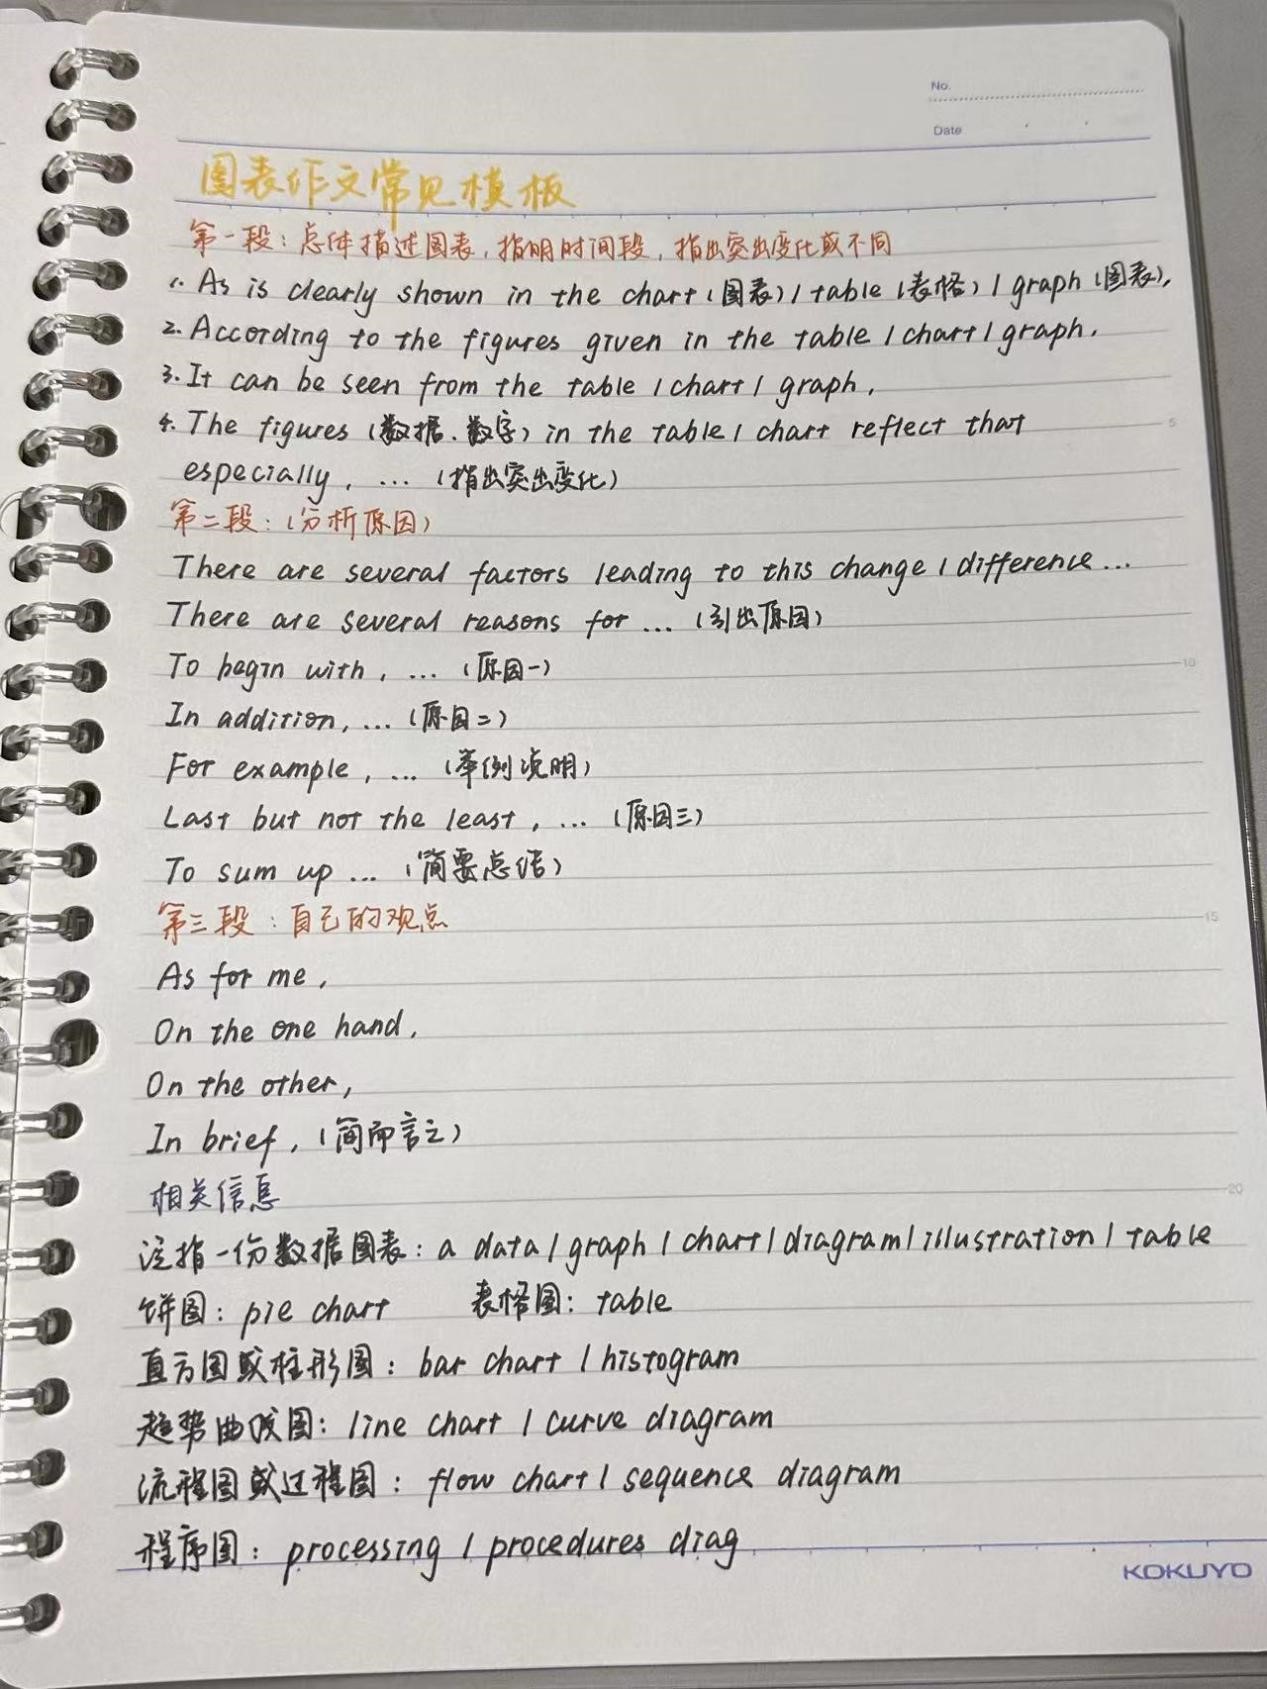 No.
Date
图表作文常见模板
第一段：总体描述图表，指明时间段，指出突出变化或不同
1. As is clearly shown in the chart（图表）/ table（表格）/ graph（图表），
2. According to the figures given in the table / chart / graph.
3. It can be seen from the table / chart / graph,
4. The figures（数据．数字）in the table / chart reflect that
5
especially, ...（指出突出变化）
第二段：（分析原因）
There are several factors leading to this change / difference...
There are several reasons for ...（引出原因）
To begin with, ...（原因一）
10
In addition, ...（原因二）
For example, ...（举例说明）
Last but not the least, ...（原因三）
To sum up ...（简要总结）
第三段：自己的观点
15
As for me,
On the one hand,
On the other,
In brief,（简而言之）
相关信息
20
泛指一份数据图表：a data / graph / chart / diagram / illustration / table
饼图：pie chart 表格图：table
直方图或柱形图：bar chart / histogram
趋势曲线图：line chart / curve diagram
流程图或过程图：flow chart / sequence diagram
程序图：processing / procedures diag
KOKUYO